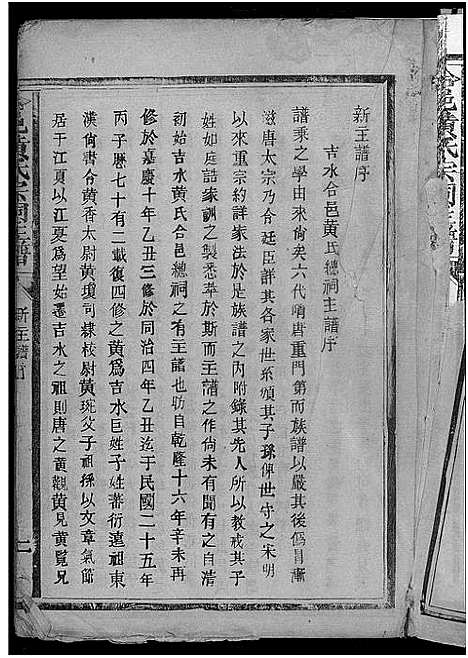 新主譜序
吉水合邑黃氏總祠主譜序
譜乘之學由來尚矣六代隋唐重門第而族譜以嚴其後僞冒漸
滋唐太宗乃合廷臣詳其各家世系頒其子孫俾世守之宋明
以來重宗約詳家法於是族譜之內附錄其先人所以教戒其子
姓如庭誥家訓之製悉萃於斯而主譜之作尚未有聞有之自清
初始吉水黃氏合邑總祠之有主譜也昉自乾隆十六年辛未再
修於嘉慶十年乙丑三修於同治四年乙丑迄于民國二十五年
丙子曆七十有二載復四修之黃爲吉水巨姓子姓蕃衍遠祖東
漢尚書令黃香太尉黃瓊司隸校尉黃琬父子祖孫以文章氣節
居于江夏以江夏爲望始遷吉水之祖則唐之黃觀黃見黃覽兄
邑黃氏宗祠主譜
新主譜序
一
合邑黃氏宗祠主譜